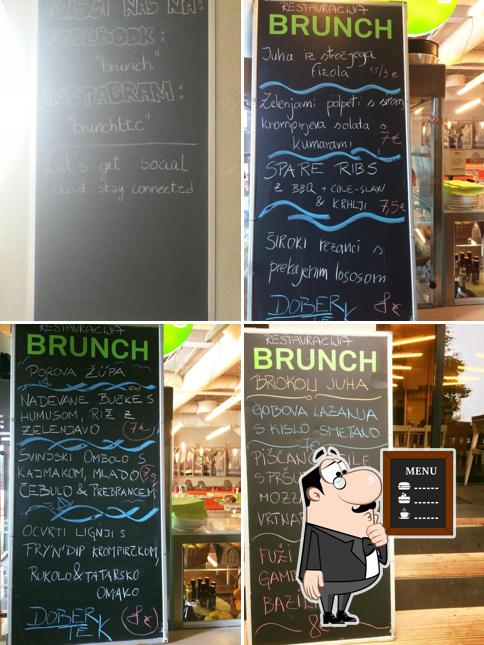 POIŠČI NAS NA:
FACEBOOK:
"brunch"
INSTAGRAM:
"brunchbtc"
Let's get social
and stay connected
RESTAVRACIJA
BRUNCH
Juha iz stročjega
fižola
Zelenjavni polpeti s
krompirjeva solata s
kumarami 7€
SPARE RIBS
z BBQ + COLE-SLAW
& KRHLJI 7,5€
ŠIROKI rezanci s
prekajenim lososom
DOBER TEK 8€
RESTAVRACIJA
BRUNCH
POROVA ŽUPA
NADEVANE BUČKE S
HUMUSOM, RIŽ Z
ZELENJAVO 7€
SVINJSKI OMBOLO S
KAJMAKOM, MLADO
ČEBULO & PREBRANCEM
OCVRTI LIGNJI S
FRY'N'DIP KROMPIRČKOM,
RUKOLO & TATARSKO
OMAKO
DOBER TEK 8€
RESTAVRACIJA
BRUNCH
BROKOLI JUHA
GOBOVA LAZANJA
S KISLO SMETANO
7€
MOZZ
VRTNA
FUŽI
GAMB
BAZIL
8€
MENU